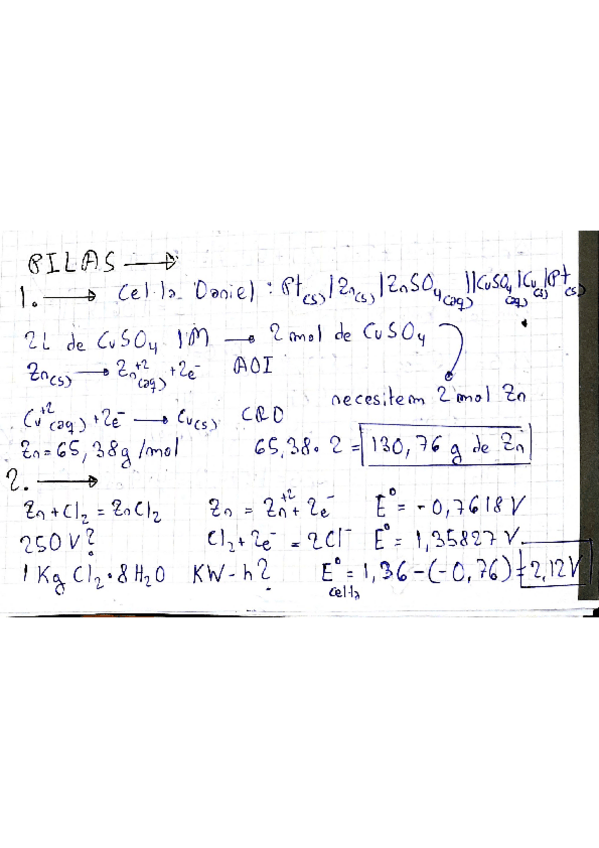 PILAS →
1. → Cel·la Daniel: Pt(s) | Zn(s) | ZnSO4(aq) || CuSO4(aq) | Cu(s) | Pt(s)
2L de CuSO4 1M → 2 mol de CuSO4
Zn(s) → Zn+2(aq) + 2e- AOI
necesitem 2 mol Zn
Cu+2(aq) + 2e- → Cu(s) CRD
Zn = 65,38g/mol 65,38·2 = 130,76 g de Zn
2. →
Zn + Cl2 = ZnCl2 Zn = Zn+2 + 2e- E° = -0,7618V
250V? Cl2 + 2e- = 2Cl- E° = 1,35827V
1 Kg Cl2·8H2O KW-h? E°cel·la = 1,36-(-0,76) = 2,12V